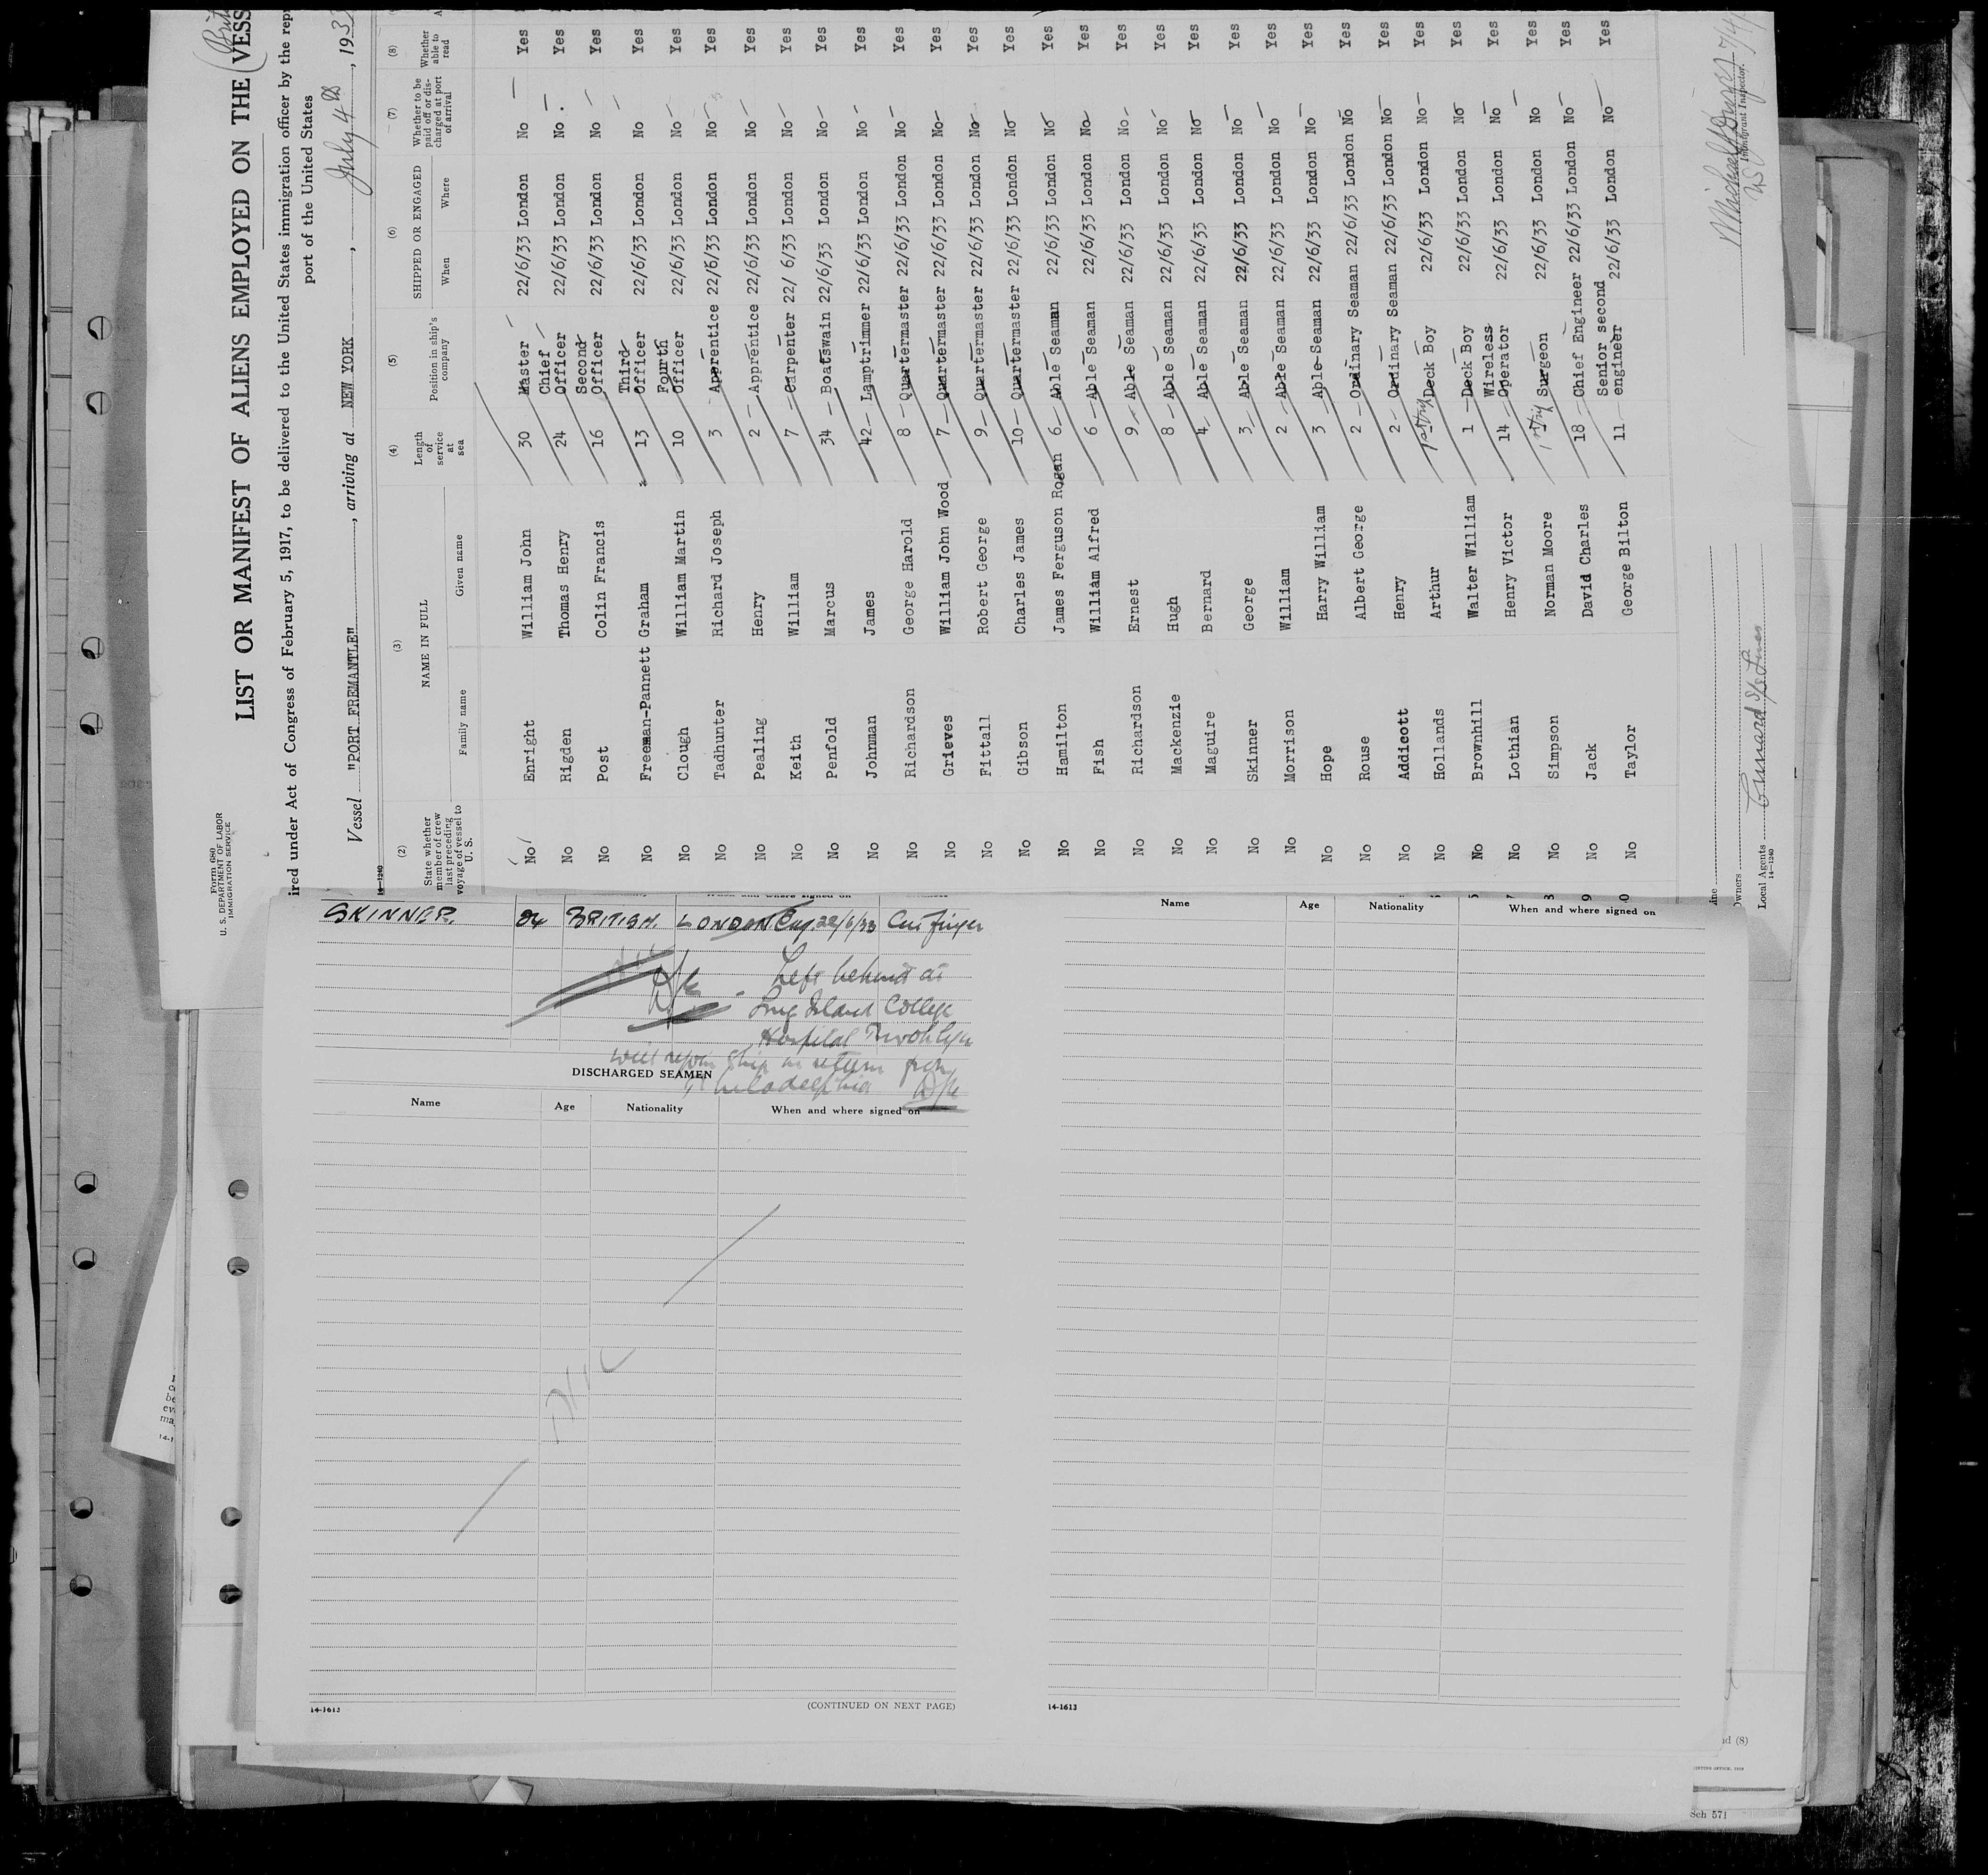 Form 680
U. S. DEPARTMENT OF LABOR
IMMIGRATION SERVICE
LIST OR MANIFEST OF ALIENS EMPLOYED ON THE VESS
ired under Act of Congress of February 5, 1917, to be delivered to the United States immigration officer by the repr
port of the United States
Vessel "PORT FREMANTLE", arriving at NEW YORK, July 4th, 1933
14-1240
(2) (3) (4) (5) (6) (7) (8)
State whether member of crew last preceding voyage of vessel to U. S.
NAME IN FULL
Family name Given name
Length of service at sea
Position in ship's company
SHIPPED OR ENGAGED
When Where
Whether to be paid off or discharged at port of arrival
Whether able to read
No Enright William John 30 Master 22/6/33 London No Yes
No Rigden Thomas Henry 24 Chief Officer 22/6/33 London No Yes
No Post Colin Francis 16 Second Officer 22/6/33 London No Yes
No Freeman-Pannett Graham 13 Third Officer 22/6/33 London No Yes
No Clough William Martin 10 Fourth Officer 22/6/33 London No Yes
No Tadhunter Richard Joseph 3 Apprentice 22/6/33 London No Yes
No Pealing Henry 2 Apprentice 22/6/33 London No Yes
No Keith William 7 Carpenter 22/ 6/33 London No Yes
No Penfold Marcus 34 Boatswain 22/6/33 London No Yes
No Johnman James 42 Lamptrimmer 22/6/33 London No Yes
No Richardson George Harold 8 Quartermaster 22/6/33 London No Yes
No Grieves William John Wood 7 Quartermaster 22/6/33 London No Yes
No Fittall Robert George 9 Quartermaster 22/6/33 London No Yes
No Gibson Charles James 10 Quartermaster 22/6/33 London No Yes
No Hamilton James Ferguson Rogan 6 Able Seaman 22/6/33 London No Yes
No Fish William Alfred 6 Able Seaman 22/6/33 London No Yes
No Richardson Ernest 9 Able Seaman 22/6/33 London No Yes
No Mackenzie Hugh 8 Able Seaman 22/6/33 London No Yes
No Maguire Bernard 4 Able Seaman 22/6/33 London No Yes
No Skinner George 3 Able Seaman 22/6/33 London No Yes
No Morrison William 2 Able Seaman 22/6/33 London No Yes
No Hope Harry William 3 Able Seaman 22/6/33 London No Yes
No Rouse Albert George 2 Ordinary Seaman 22/6/33 London No Yes
No Addicott Henry 2 Ordinary Seaman 22/6/33 London No Yes
No Hollands Arthur 1st trip Deck Boy 22/6/33 London No Yes
No Brownhill Walter William 1 Deck Boy 22/6/33 London No Yes
No Lothian Henry Victor 14 Wireless Operator 22/6/33 London No Yes
No Simpson Norman Moore 1st trip Surgeon 22/6/33 London Yes
No Jack David Charles 18 Chief Engineer 22/6/33 London No Yes
No Taylor George Bilton 11 Senior second engineer 22/6/33 London No Yes
Immigrant Inspector.
Local Agents Cunard SS Lines
14-1240
SKINNER. 24 BRITISH. LONDON Eng. 22/6/33 Cut finger
Left behind at
Long Island College
Hospital Brooklyn
will rejoin ship on return from
Philadelphia
DISCHARGED SEAMEN
Name Age Nationality When and where signed on
(CONTINUED ON NEXT PAGE)
14-1613
Name Age Nationality When and where signed on
14-1613
Sch 571